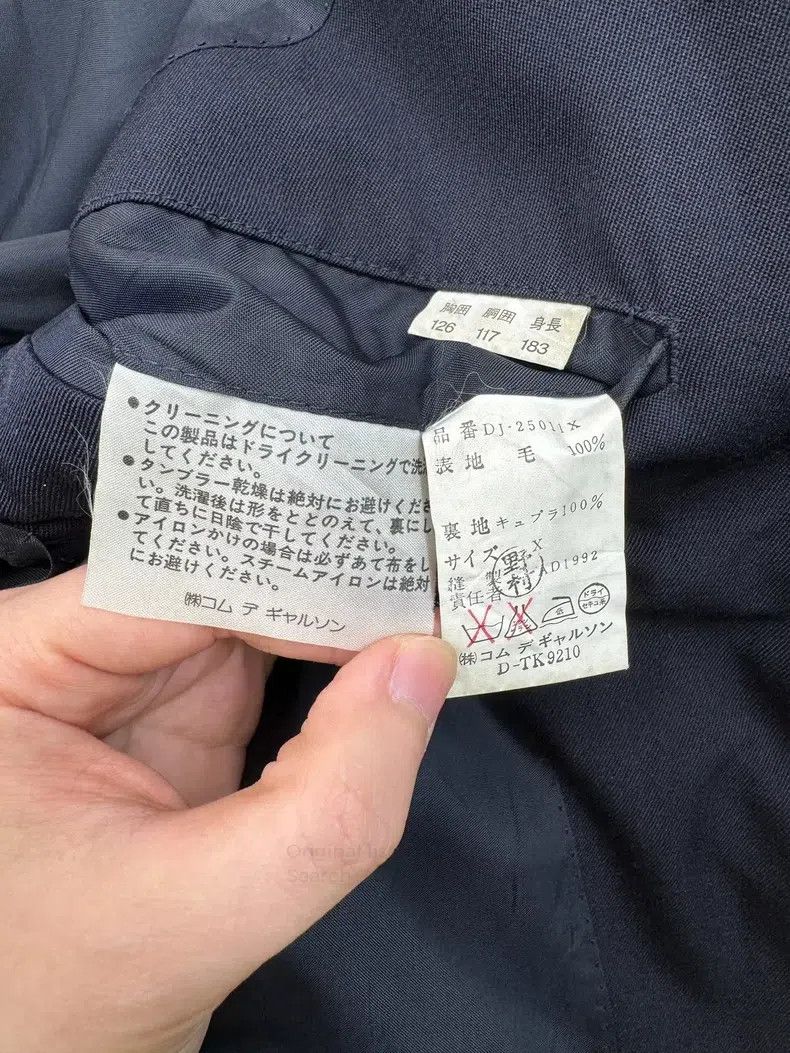 胸囲 胴囲 身長
126 117 183
●クリーニングについて
この製品はドライクリーニングで洗
してください。
●タンブラー乾燥は絶対にお避けくださ
い。洗濯後は形をととのえて、裏にし
て直ちに日陰で干してください。
●アイロンかけの場合は必ずあて布をし
てください。スチームアイロンは絶対
にお避けください。
㈱コム デ ギャルソン
品番DJ-25011X
表地 毛 100%
裏地 キュプラ100%
サイズ X
縫製 AD1992
責任者
野村
ドライ
セキユ系
㈱コム デ ギャルソン
D-TK9210
Original
Search